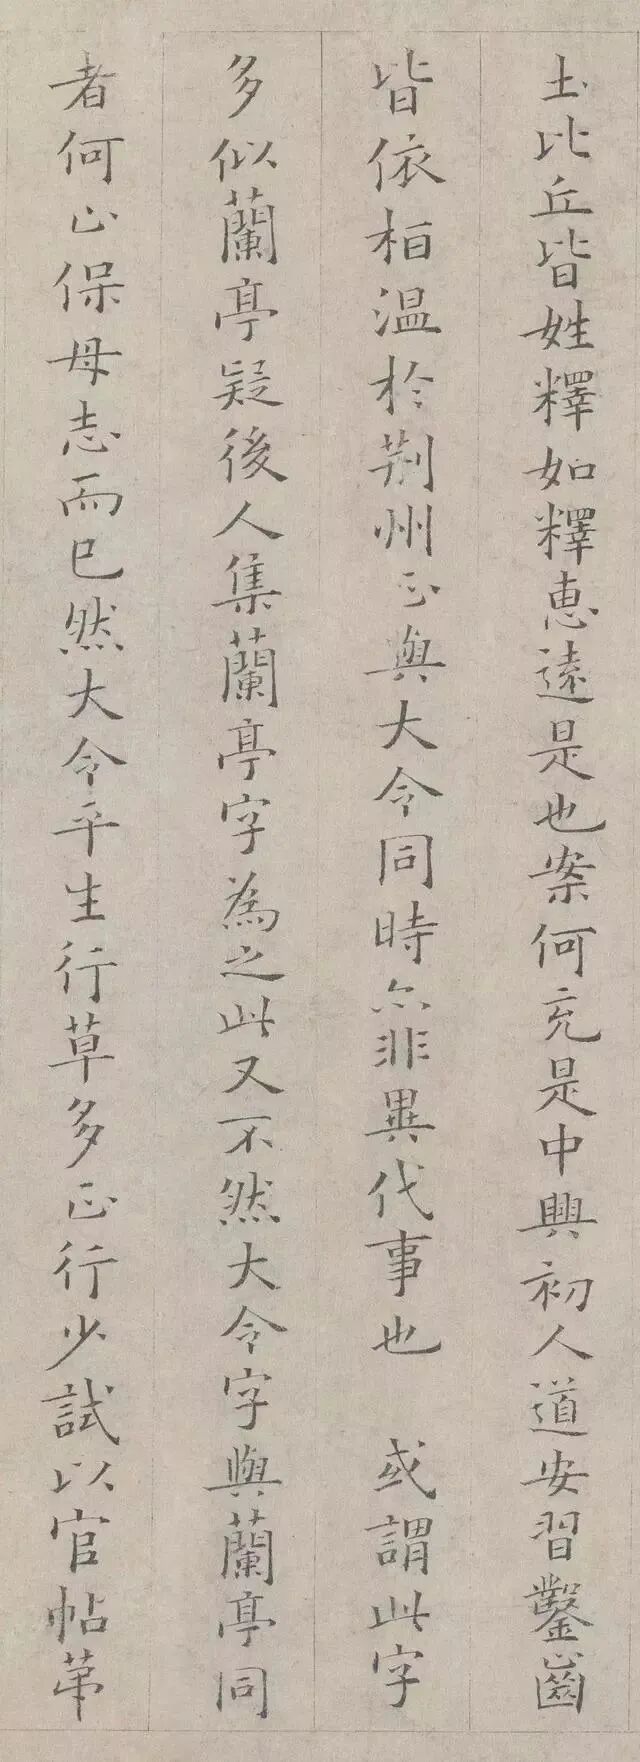 土比丘皆姓釋如釋惠遠是也案何充是中興初人道安習鑿齒
皆依桓溫於荆州正與大令同時亦非異代事也 或謂此字
多似蘭亭疑後人集蘭亭字為之此又不然大令字與蘭亭同
者何止保母志而已然大令平生行草多正行少試以官帖苐